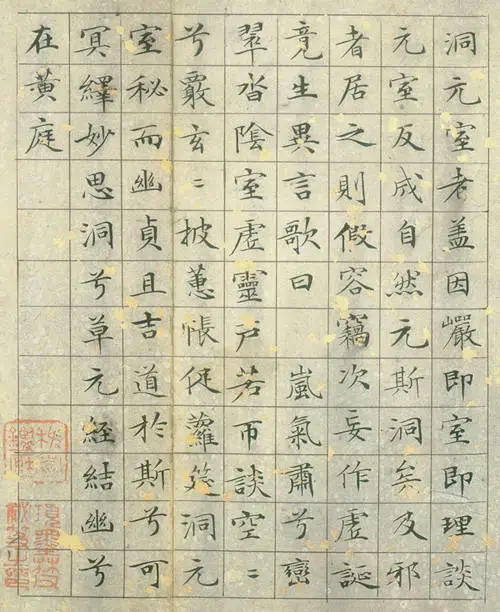 洞元室者盖因巗即室即理談
元室反成自然元斯洞矣及邪
者居之則假容竊次妄作虛誕
竟生異言歌曰 嵐氣肅兮巒
翠沓陰室虛靈戶若帀談空〻
兮覈玄〻披蕙帳促蘿筵洞元
室秘而幽貞且吉道於斯兮可
冥繹妙思洞兮草元經結幽兮
在黃庭